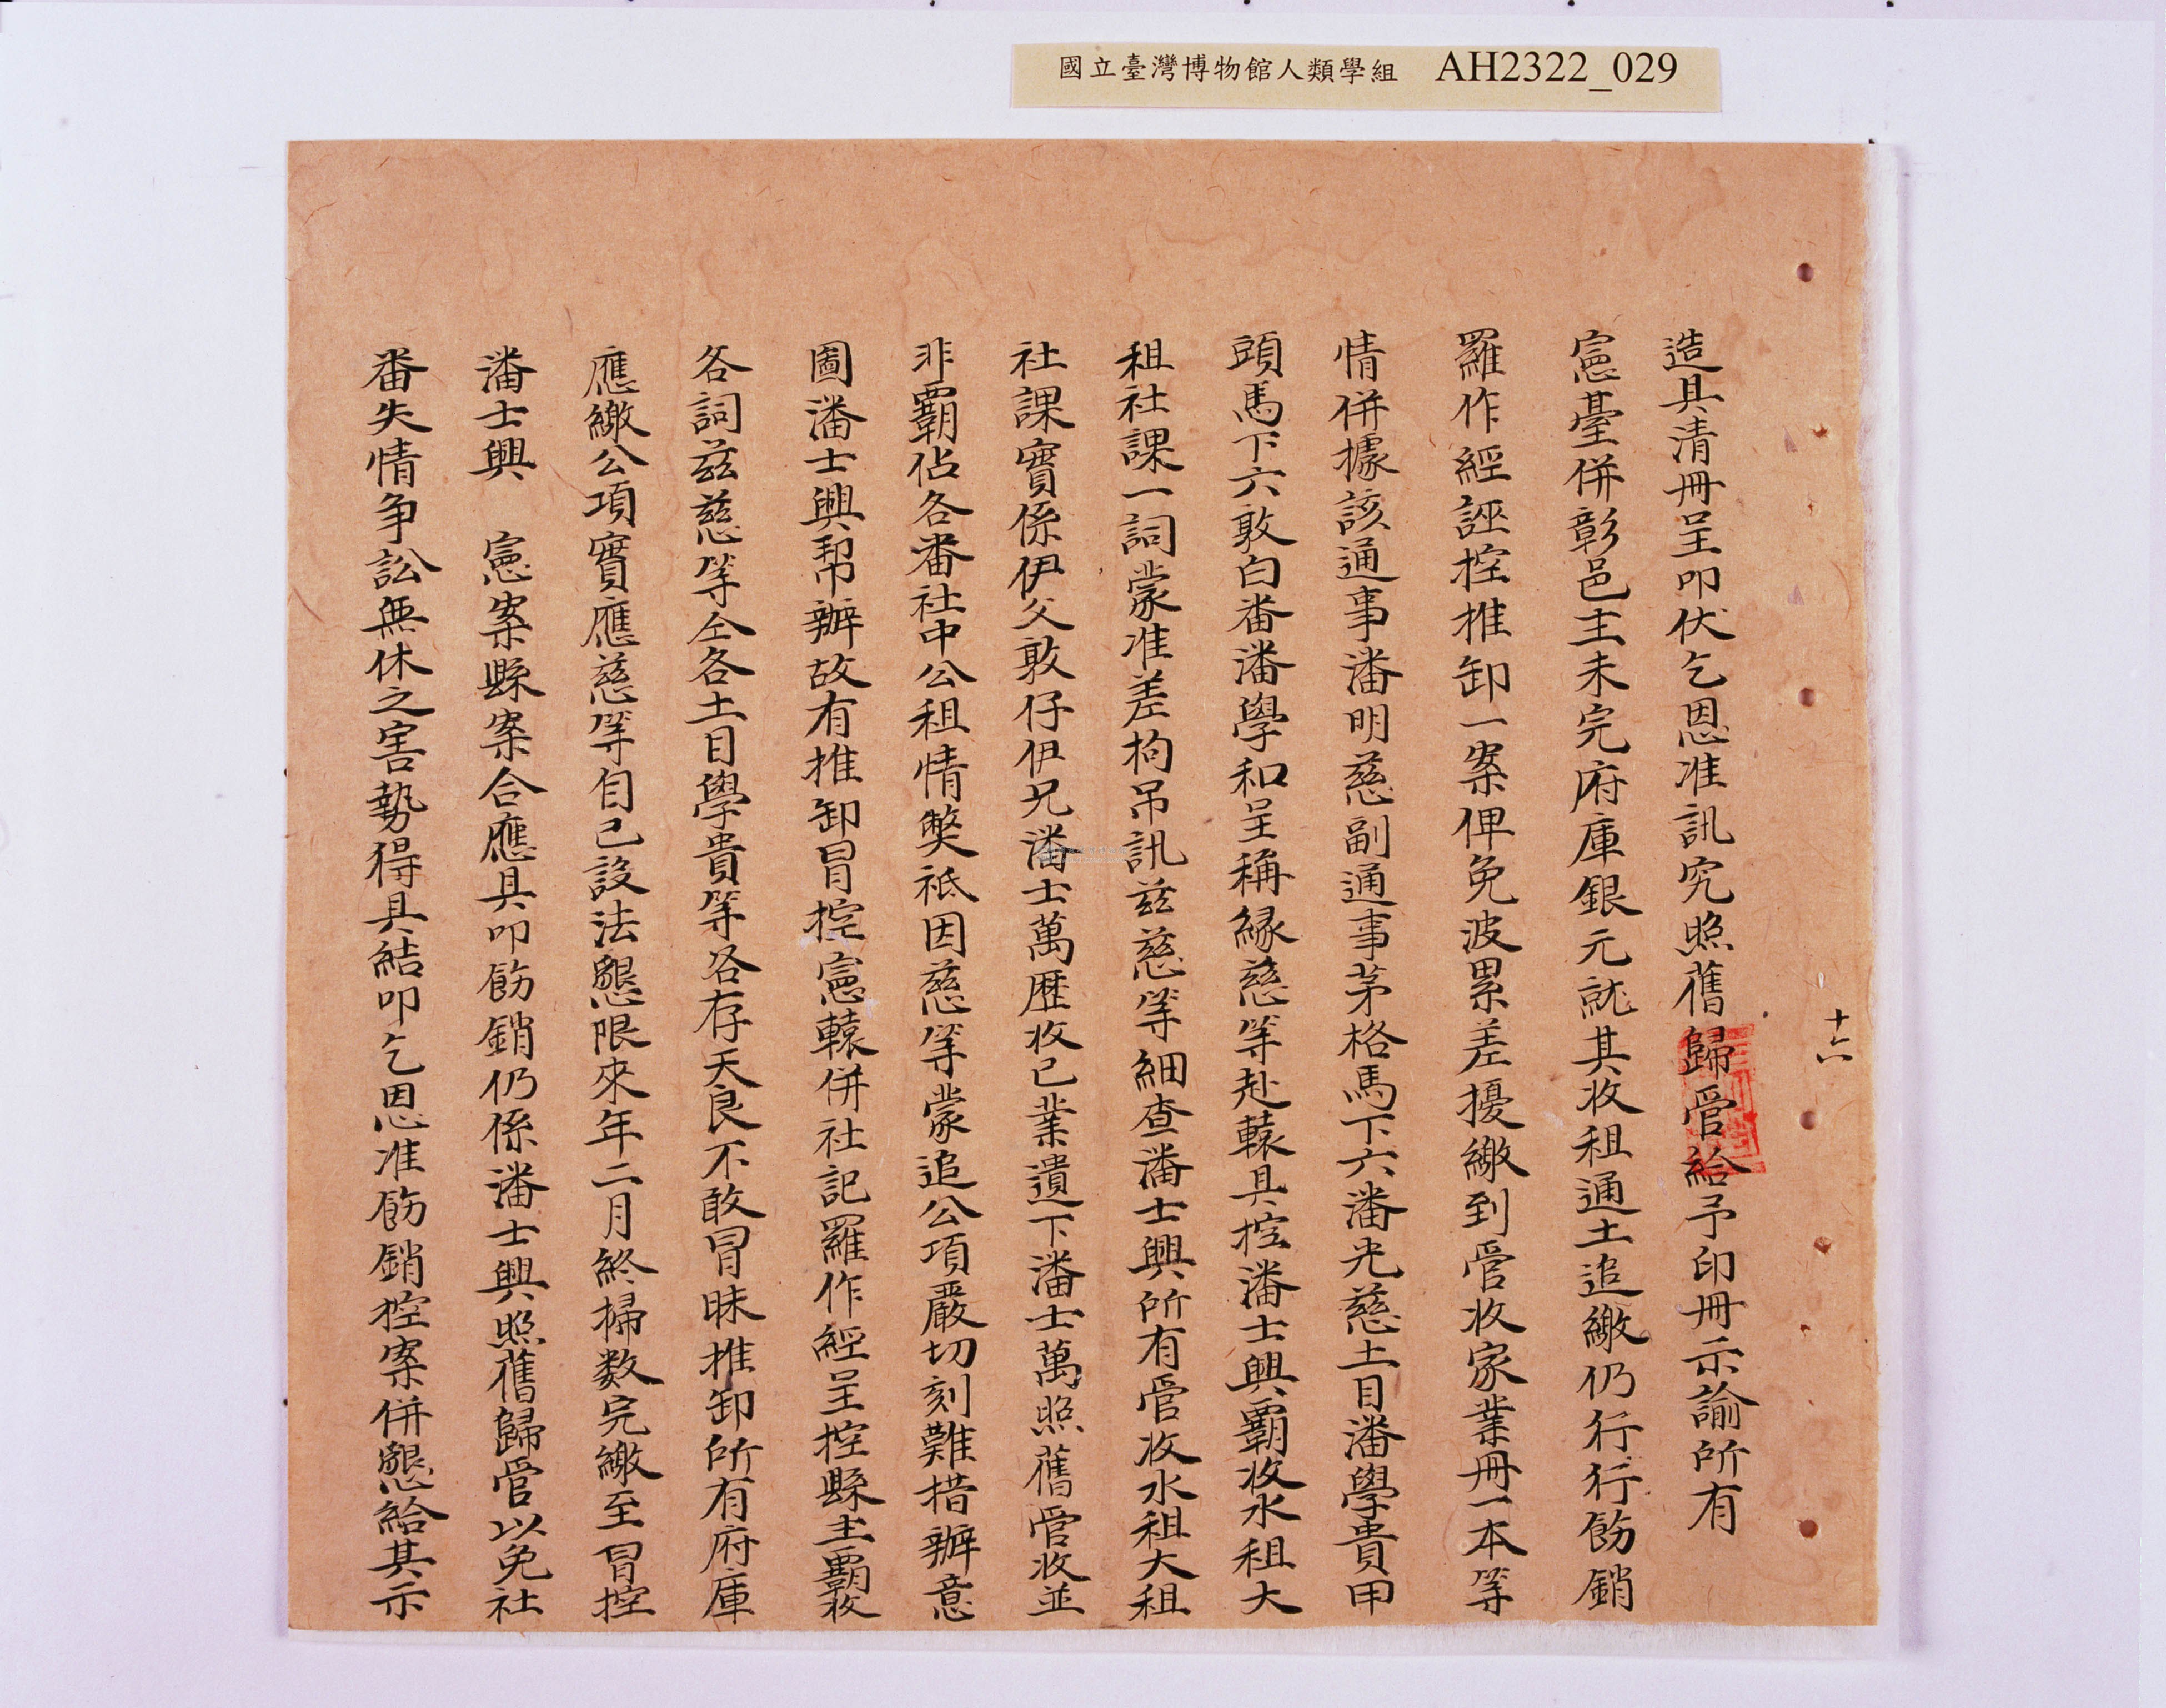 國立臺灣博物館人類學組 AH2322_029
十六
造具清冊呈叩伏乞恩准訊究照舊歸管給予印冊示諭所有
憲臺併彰邑主未完府庫銀元就其收租通土追繳仍行行飭銷
羅作經誣控推卸一案俾免波累差擾繳到管收家業冊一本等
情併據該通事潘明慈副通事茅格馬下六潘光慈土目潘學貴甲
頭馬下六敦白番潘學和呈稱緣慈等赴轅具控潘士興霸收水租大
租社課一詞蒙准差拘吊訊茲慈等細查潘士興所有管收水租大租
社課實係伊父敦仔伊兄潘士萬歷收已業遺下潘士萬照舊管收並
非霸佔各番社中公租情獘祗因慈等蒙追公項嚴切刻難措辦意
圖潘士興幇辦故有推卸冒控憲轅併社記羅作經呈控縣主霸收
各詞茲慈等仝各土目學貴等各存天良不敢冒昧推卸所有府庫
應繳公項實應慈等自己設法懇限來年二月終掃数完繳至冒控
潘士興 憲案縣案合應具叩飭銷仍係潘士興照舊歸管以免社
番失情争訟無休之害勢得具結叩乞恩准飭銷控案併懇給其示